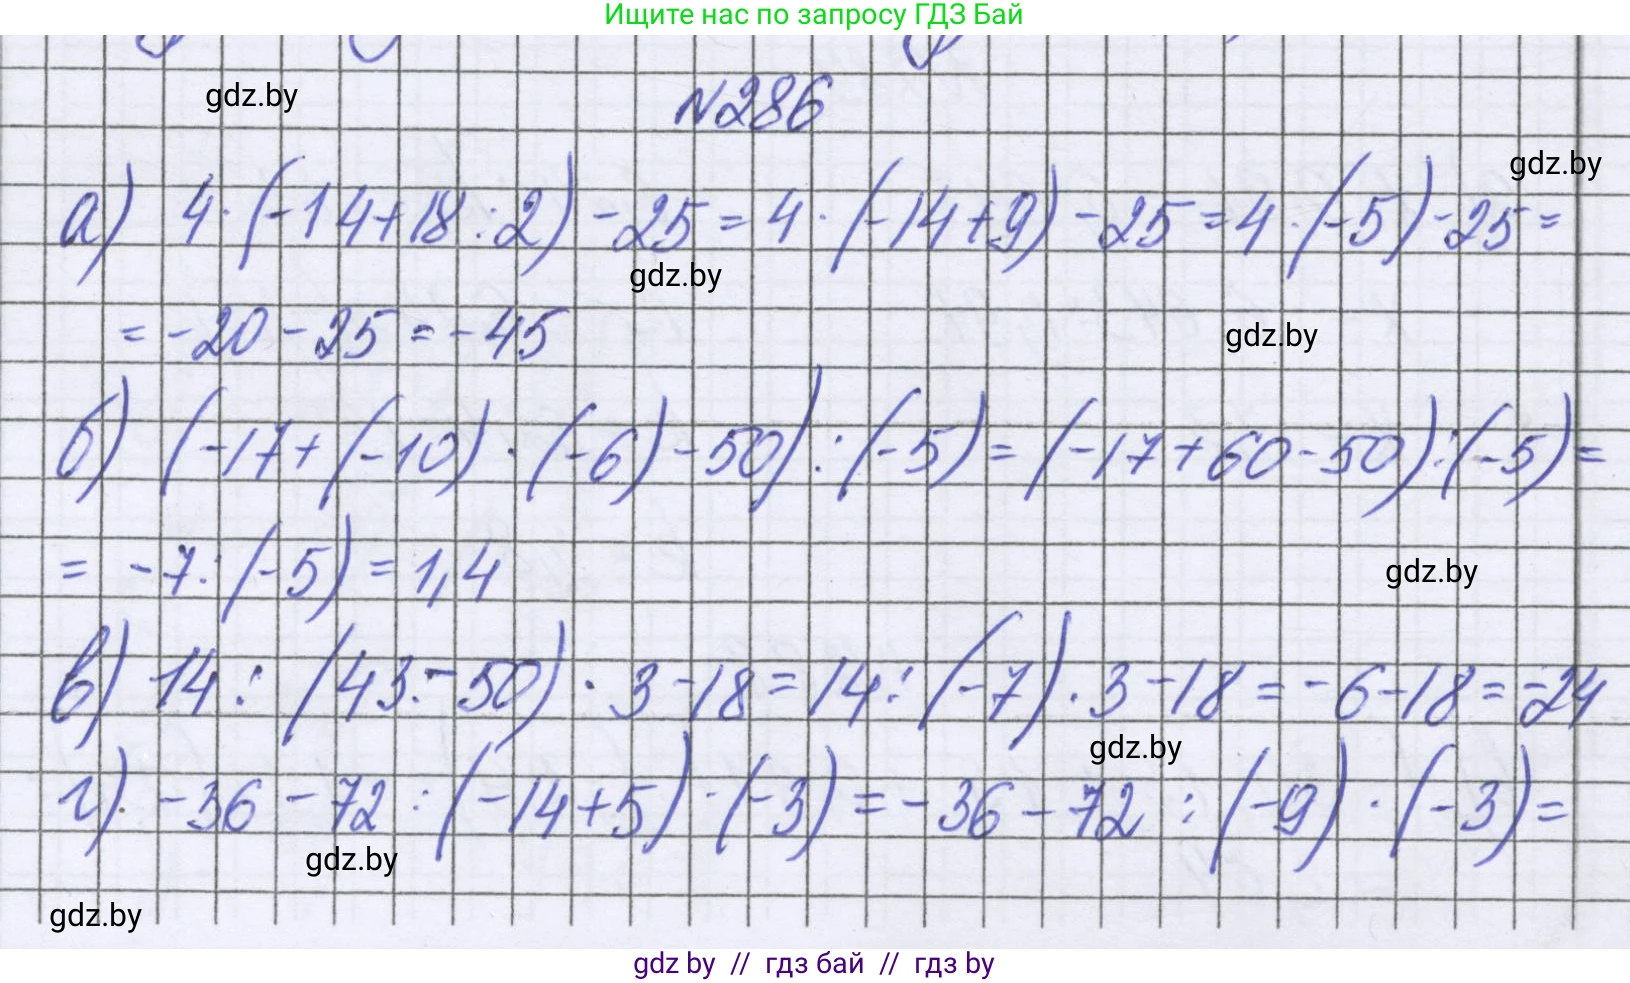 Ищите нас по запросу ГДЗ Бай
gdz.by
№286
gdz.by
а) 4·(-14+18:2)-25=4·(-14+9)-25=4·(-5)-25=
gdz.by
=-20-25=-45
gdz.by
б) (-17+(-10)·(-6)-50):(-5)=(-17+60-50):(-5)=
=-7:(-5)=1,4
gdz.by
в) 14:(43-50)·3-18=14:(-7)·3-18=-6-18=-24
gdz.by
г) -36-72:(-14+5)·(-3)=-36-72:(-9)·(-3)=
gdz.by
gdz.by
gdz by // гдз бай // гдз by